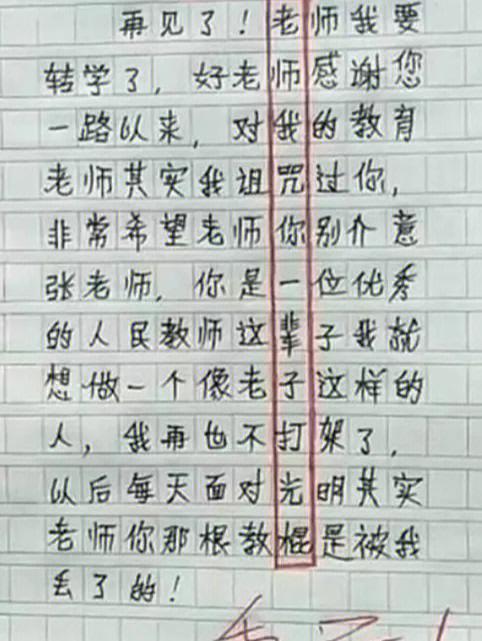 再见了！老师我要
转学了，好老师感谢您
一路以来，对我的教育
老师其实我诅咒过你，
非常希望老师你别介意
张老师，你是一位优秀
的人民教师这辈子我就
想做一个像老子这样的
人，我再也不打架了，
以后每天面对光明其实
老师你那根教棍是被我
丢了的！